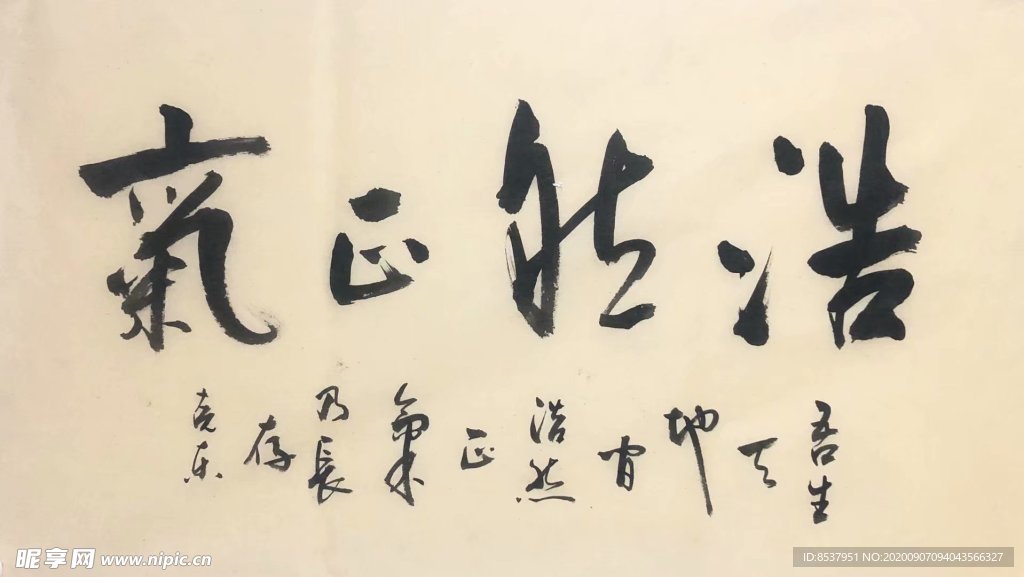 浩然正氣
吾生天地间浩然正氣乃長存
克东
昵享网 www.nipic.cn
ID:8537951 NO:20200907094043566327